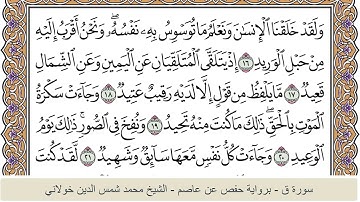 وَلَقَدْ خَلَقْنَا ٱلْإِنسَٰنَ وَنَعْلَمُ مَا تُوَسْوِسُ بِهِۦ نَفْسُهُۥ ۖ وَنَحْنُ أَقْرَبُ إِلَيْهِ
مِنْ حَبْلِ ٱلْوَرِيدِ ١٦ إِذْ يَتَلَقَّى ٱلْمُتَلَقِّيَانِ عَنِ ٱلْيَمِينِ وَعَنِ ٱلشِّمَالِ
قَعِيدٌ ١٧ مَّا يَلْفِظُ مِن قَوْلٍ إِلَّا لَدَيْهِ رَقِيبٌ عَتِيدٌ ١٨ وَجَآءَتْ سَكْرَةُ
ٱلْمَوْتِ بِٱلْحَقِّ ۖ ذَٰلِكَ مَا كُنتَ مِنْهُ تَحِيدُ ١٩ وَنُفِخَ فِى ٱلصُّورِ ۚ ذَٰلِكَ يَوْمُ
ٱلْوَعِيدِ ٢٠ وَجَآءَتْ كُلُّ نَفْسٍ مَّعَهَا سَآئِقٌ وَشَهِيدٌ ٢١ لَّقَدْ كُنتَ
سورة ق - برواية حفص عن عاصم - الشيخ محمد شمس الدين خولاني